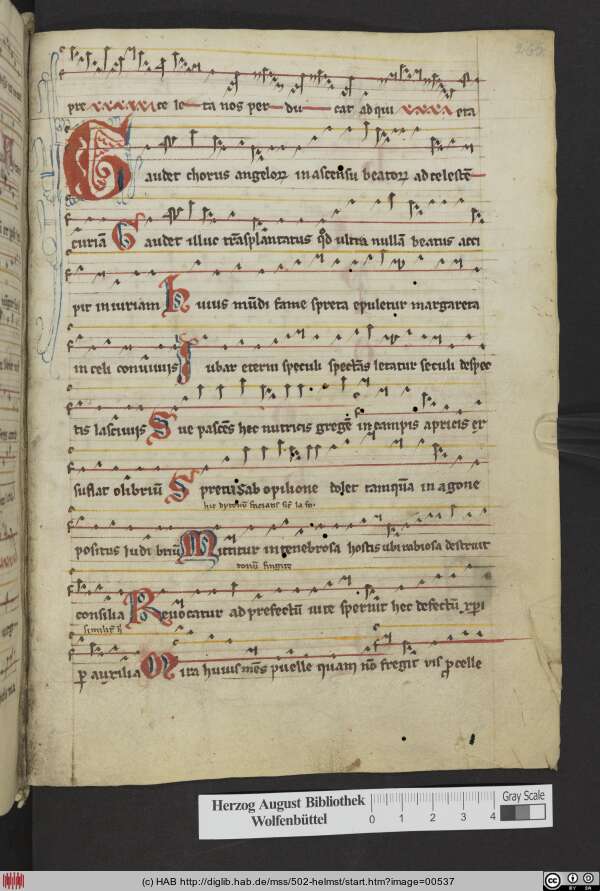 265
pre ce le ta nos per du cat ad qui eta
Gaudet chorus angeloꝝ in ascensu beatoꝝ ad celestē
curiam Gaudet illuc trāsplantatus qd ultra nullā beatus acci
pit iniuriam Huius mūdi fame spreta epuletur margareta
in celi conviviis Iubar eterni speculi spectās letatur seculi despec
tis lasciviis Sue pascēs hec nutricis gregē in campis apricis er
suflat olibriū Spretus ab opilione dolet tamquā in agone
positus ludibriū Mittitur in tenebrosa hostis ubi rabiosa destruit
consilia Revocatur ad prefectū iure spernit hec defectū xp̄i
ꝑ auxilia Mira huius mēs puelle quam nō fregit vis ꝓcelle
Herzog August Bibliothek
Wolfenbüttel
0 1 2 3 4
Gray Scale
(c) HAB http://diglib.hab.de/mss/502-helmst/start.htm?image=00537
CC BY SA